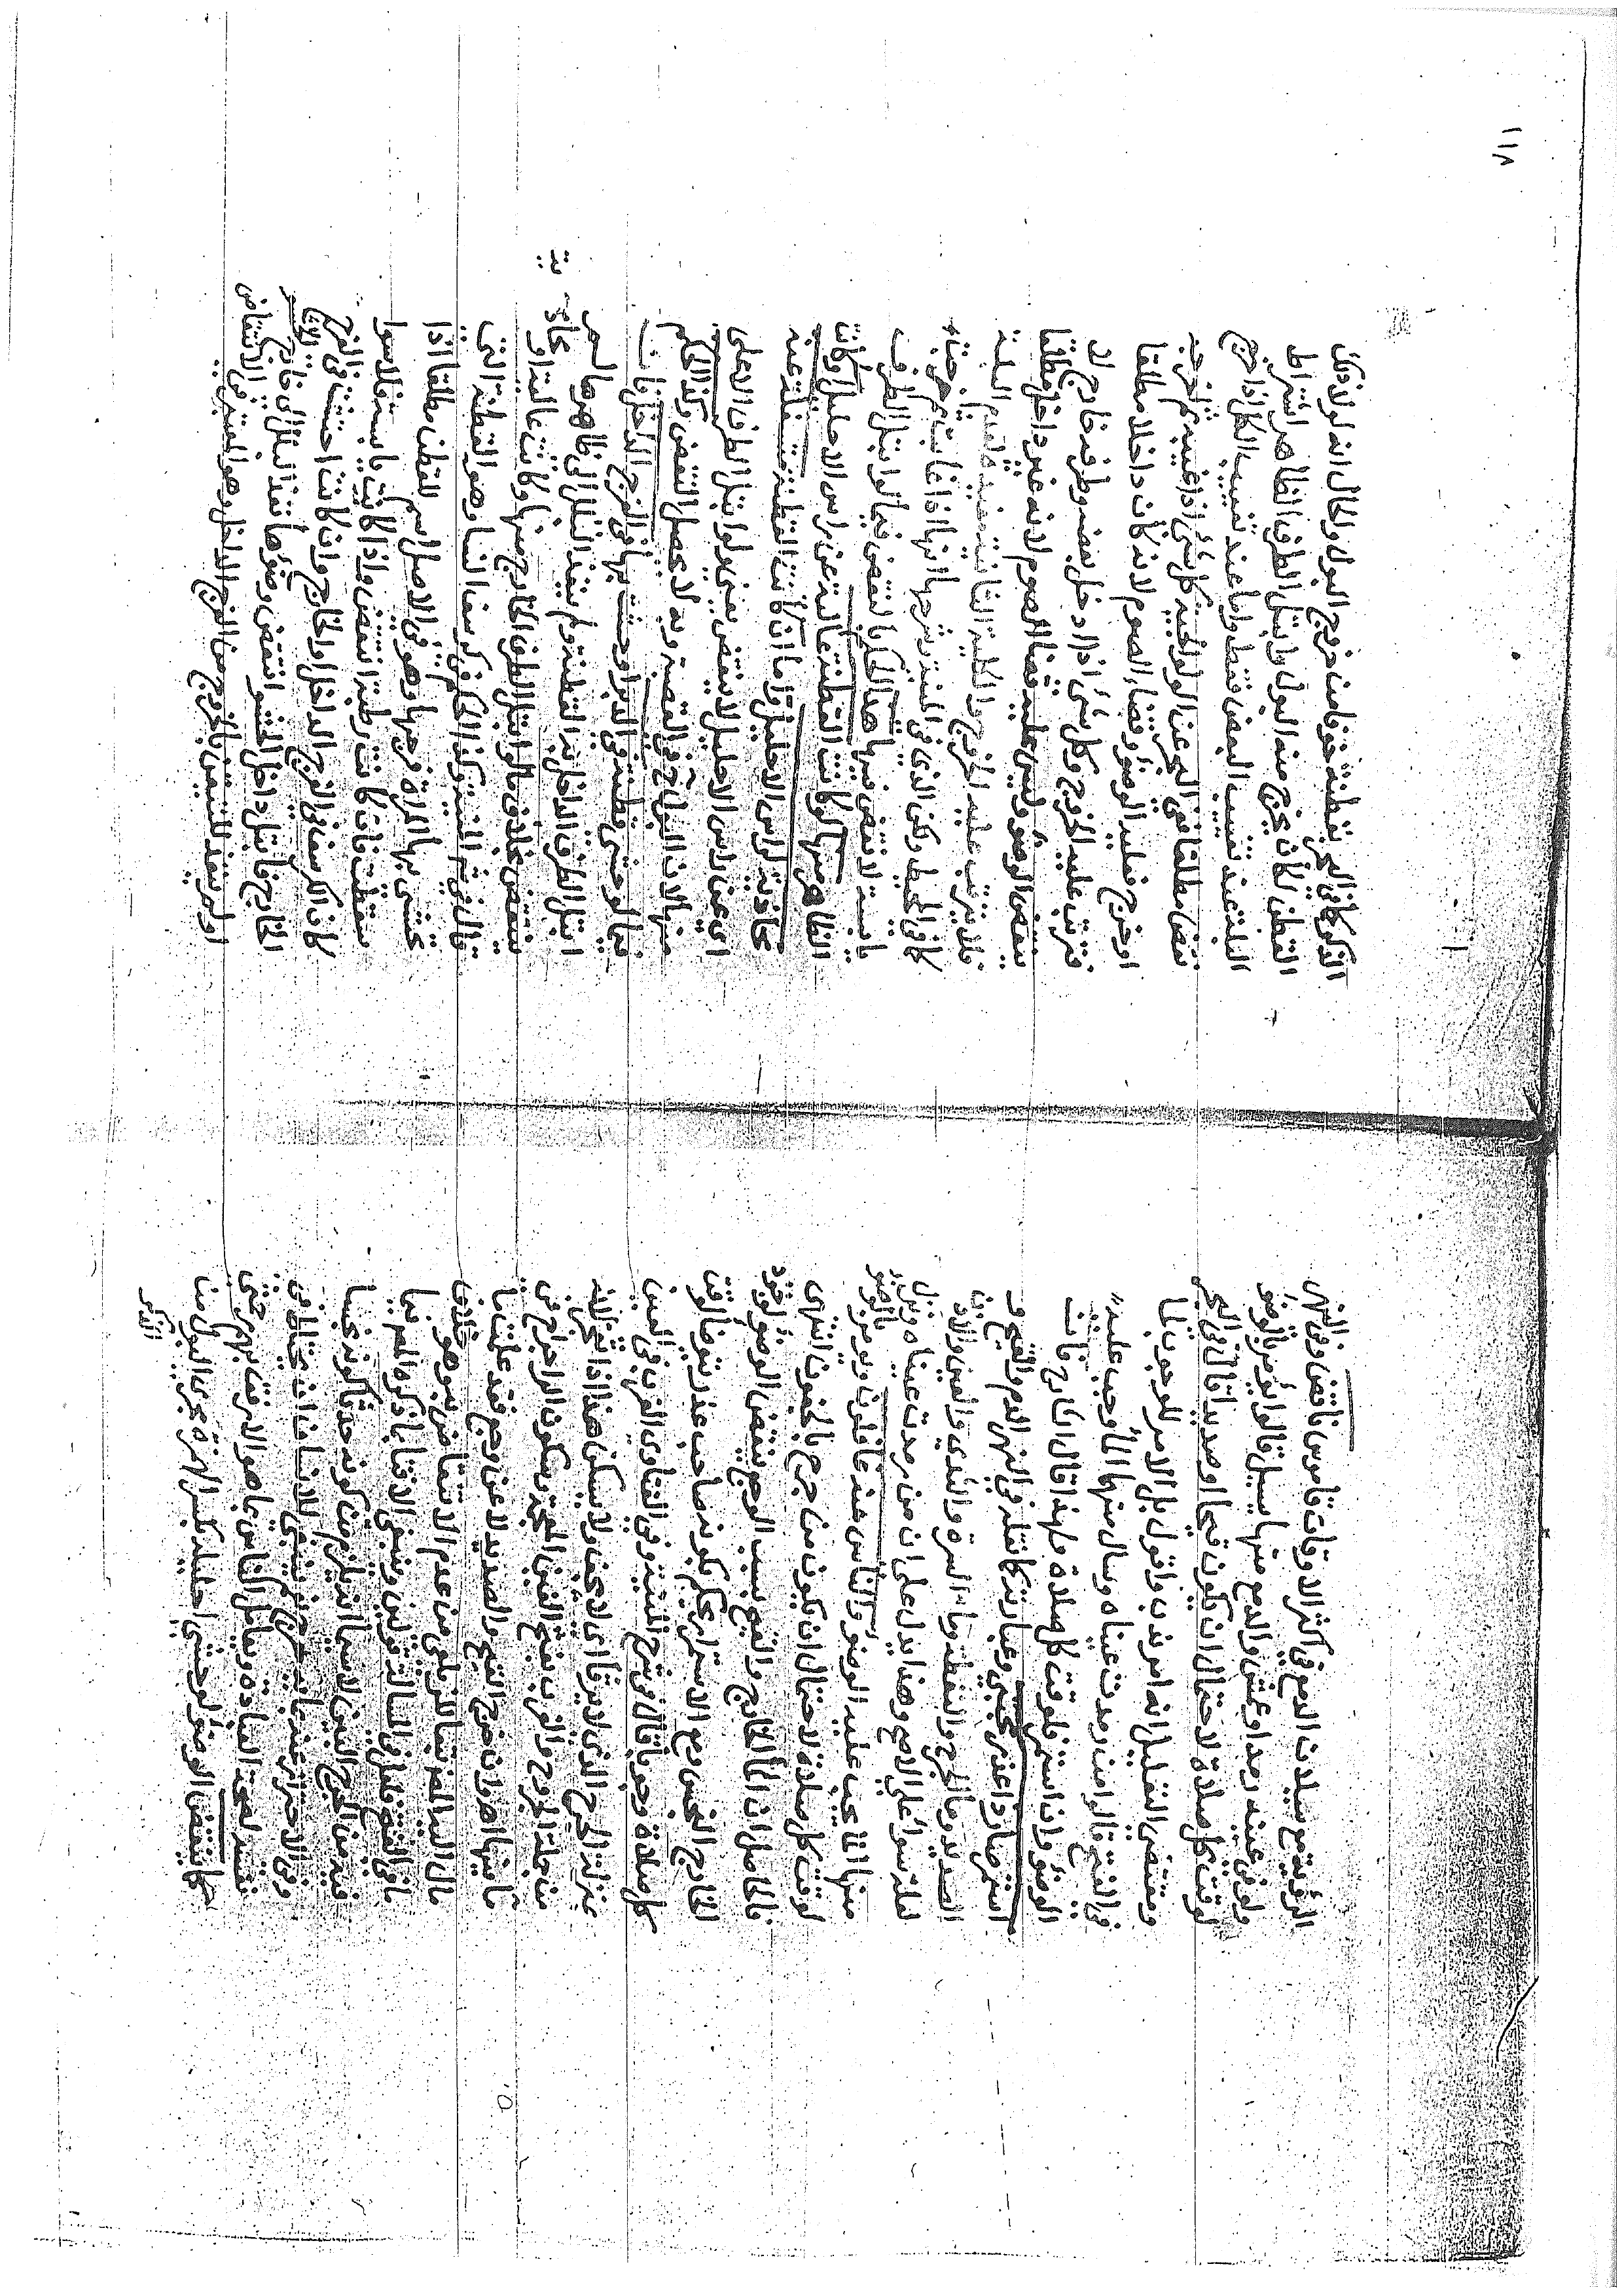 الرؤية مع سيلان الدمع في اكثر الاوقات قاموس ناقض وفي النهر
ولو في عينيه رمدا وعمش والدمع منها يسيل قالوا يؤمر بالوضوء
لوقت كل صلاة لاحتمال ان يكون قيحا او صديدا قال في البحر
ومقتضى التعليل انه امر ندب واقول بل الامر للوجوب لما
في الفتح قالوا من رمدت عيناه وسال منها الماء وجب عليه
الوضوء وان استمر فلوقت كل صلاة ولهذا قال الشارح فان
استمر صار ذا عذر مجتبى وعبارته كما نقله في النهر الدم والقيح و
الصديد وماء الجرح والنفطة وماء السرة والثدي والعين والاذن
لعلة سواء على الاصح وهذا يدل على ان من رمدت عيناه ونزل
منها الماء يجب عليه الوضوء والناس عنه غافلون ويؤمر بالوضوء
لوقت كل صلاة لاحتمال ان يكون من جرح بالجفون انتهى
فالحاصل ان الماء الخارج والقيح بسبب الوجع ينقض الوضوء لوجود
الخارج النجس ومع الاستمرار يحكم بكونه صاحب عذر يتوضأ لوقت
كل صلاة وجوبا قال في شرح المنية وفي الفتاوى الغرب في العين
بمنزلة الجرح الذي لا يرقأ اي لا يجف ولا يسكن هذا اذا لانه
من جملة الجروح والغرب بفتح الغين المعجمة وسكون الراء خراج من
مآقيها اهـ وان خرج القيح والصديد لا عن وجع فقد علمت ما
مال اليه المص تبعا للزيلعي من عدم الانتقاض به وهو خلاف
ما في الفتح في المسألة قولين وينبغي الافتاء بما ذكره المص لما
فيه من الحرج البين لا سيما انه يلزم من كونه حدثا كونه نجسا
وفي الاحتراز عنه حرج فينبغي للانسان ان يحتاط في
نفسه لصحة العبادة ويعامل الناس بما هو الارفق بهم
كما ينقض الوضوء لو حشى احليله بكسر الهمزة مجرى البول من
الذكر
١١٧
الذكر كما في البحر بقطنة خوفا من خروج البول والحال انه لولا ذلك
القطن لكان يخرج منه البول وابتل الطرف الظاهر اشتراط
البلة عند تغييب البعض فقط واما عند تغييب الكل اذا خرج
نقض مطلقا ففي البحر عن الولوالجية كل شيء اذا غيبه ثم اخرجه
او خرج فعليه الوضوء وقضاء الصوم لانه كان داخلا مطلقا
فترتب عليه الخروج وكل شيء اذا ادخل بعضه وطرفه خارج لا
ينقض الوضوء وليس عليه قضاء الصوم لانه غير داخل مطلقا
فلا يترتب عليه الخروج والكلية الثانية مقيدة بعدم البلة
كما في المحيط ولكن الذي في المنية وشرحها انها اذا غابت ثم خرجت
يابسة لا تنقض فما هنا الحكم بالنقض فيما لو ابتل الطرف
الظاهر منها لو كانت القطنة عالية عن راس الاحليل او كانت
محاذية لراس الاحليل واما ان كانت القطنة متسفلة عنه
اي عن راس الاحليل لا ينقض يعني لو ابتل الطرف الاعلى
منها لان البول في القصبة وبه لا يحصل النقض وكذا الحكم
فيما لو حشى قطنة في الدبر او حشت بها في الفرج الداخل فان
ابتل الطرف الداخل من القطنة ولم ينفذ البلل الى ظاهرها لم
ينتقض بخلاف ما لو ابتل الطرف الخارج منها وكانت عالية او محاذية
قال في شرح المنية وكذا الحكم في كرسف النساء وهو القطنة التي
تحتشي بها المراة فرجها وهو في الاصل اسم للقطن مطلقا اذا
سقطت فان كانت رطبة انتقض واذا كانت يابسة فلا سواء
كان الكرسف في الفرج الداخل او الخارج وان كانت احتشت في الفرج
الخارج فابتل داخل الحشو انتقض وضوءها سواء نفذ البلل الى خارج الحشو
او لم ينفذ للتيقن بالخروج من الفرج الداخل وهو المعتبر في الانتقاض